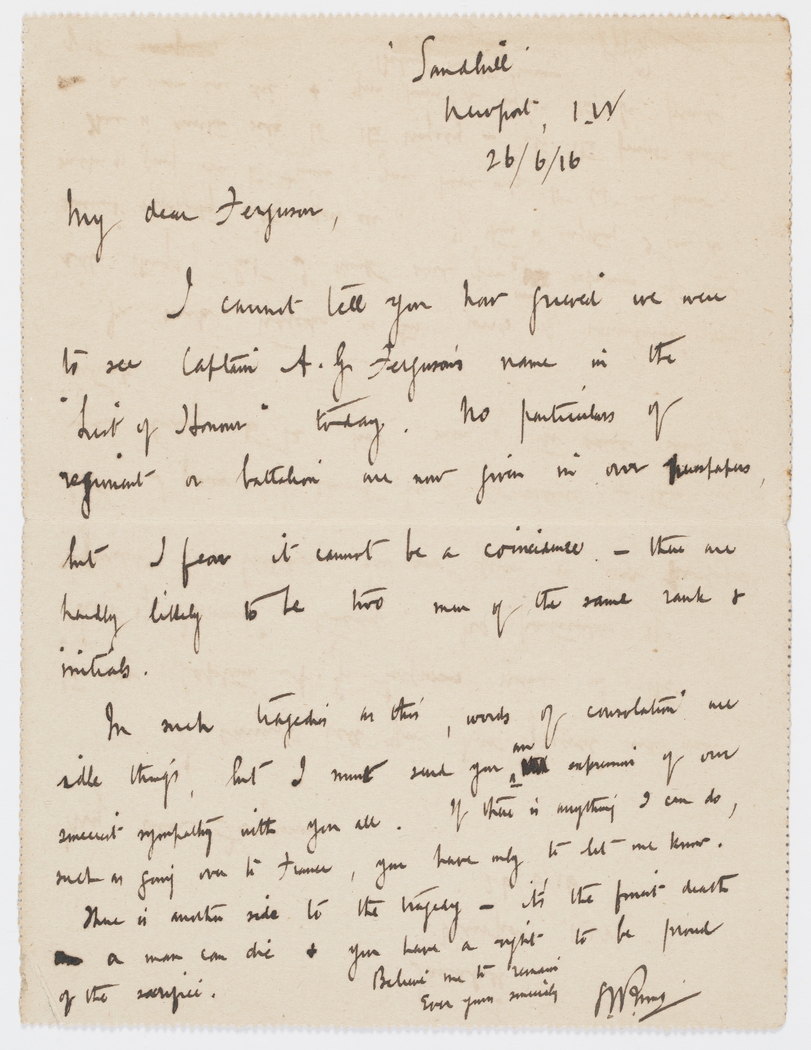 'Sandhill'
Newport, I.W
26/6/16
My dear Ferguson,
I cannot tell you how grieved we were
to see Captain A. G. Ferguson's name in the
"List of Honour" today. No particulars of
regiment or battalion are now given in our newspapers,
but I fear it cannot be a coincidence – there are
hardly likely to be two men of the same rank &
initials.
In such tragedies as this, words of consolation are
idle things, but I must send you an expression of our
sincerest sympathy with you all. If there is anything I can do,
such as going over to France, you have only to let me know.
There is another side to the tragedy – it's the finest death
a man can die & you have a right to be proud
of the sacrifice.
Believe me to remain
Ever yours sincerely